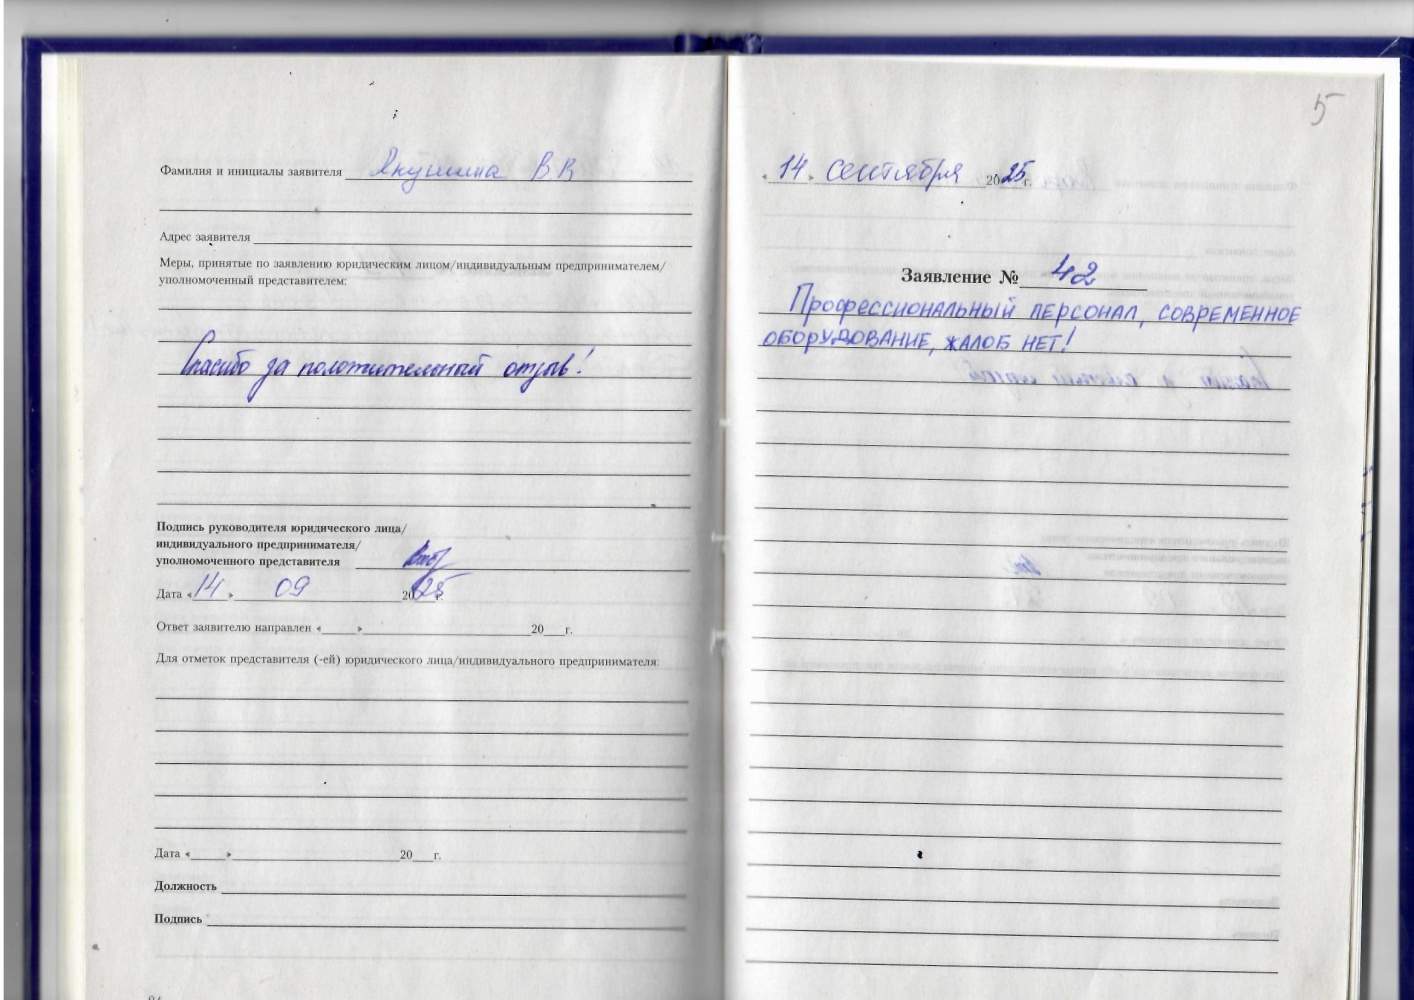 Фамилия и инициалы заявителя Якушина В В
Адрес заявителя
Меры, принятые по заявлению юридическим лицом/индивидуальным предпринимателем/
уполномоченный представителем:
Спасибо за положительный отзыв!
Подпись руководителя юридического лица/
индивидуального предпринимателя/
уполномоченного представителя
Дата «14» 09 2025 г.
Ответ заявителю направлен «____»____20___г.
Для отметок представителя (-ей) юридического лица/индивидуального предпринимателя:
Дата «____»____20___г.
Должность
Подпись
5
«14» сентября 2025 г.
Заявление № 42
Профессиональный персонал, современное
оборудование, жалоб нет!